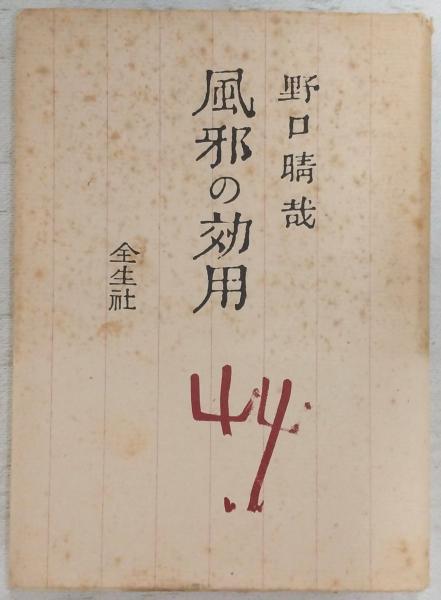 野口晴哉
風邪の効用
全生社